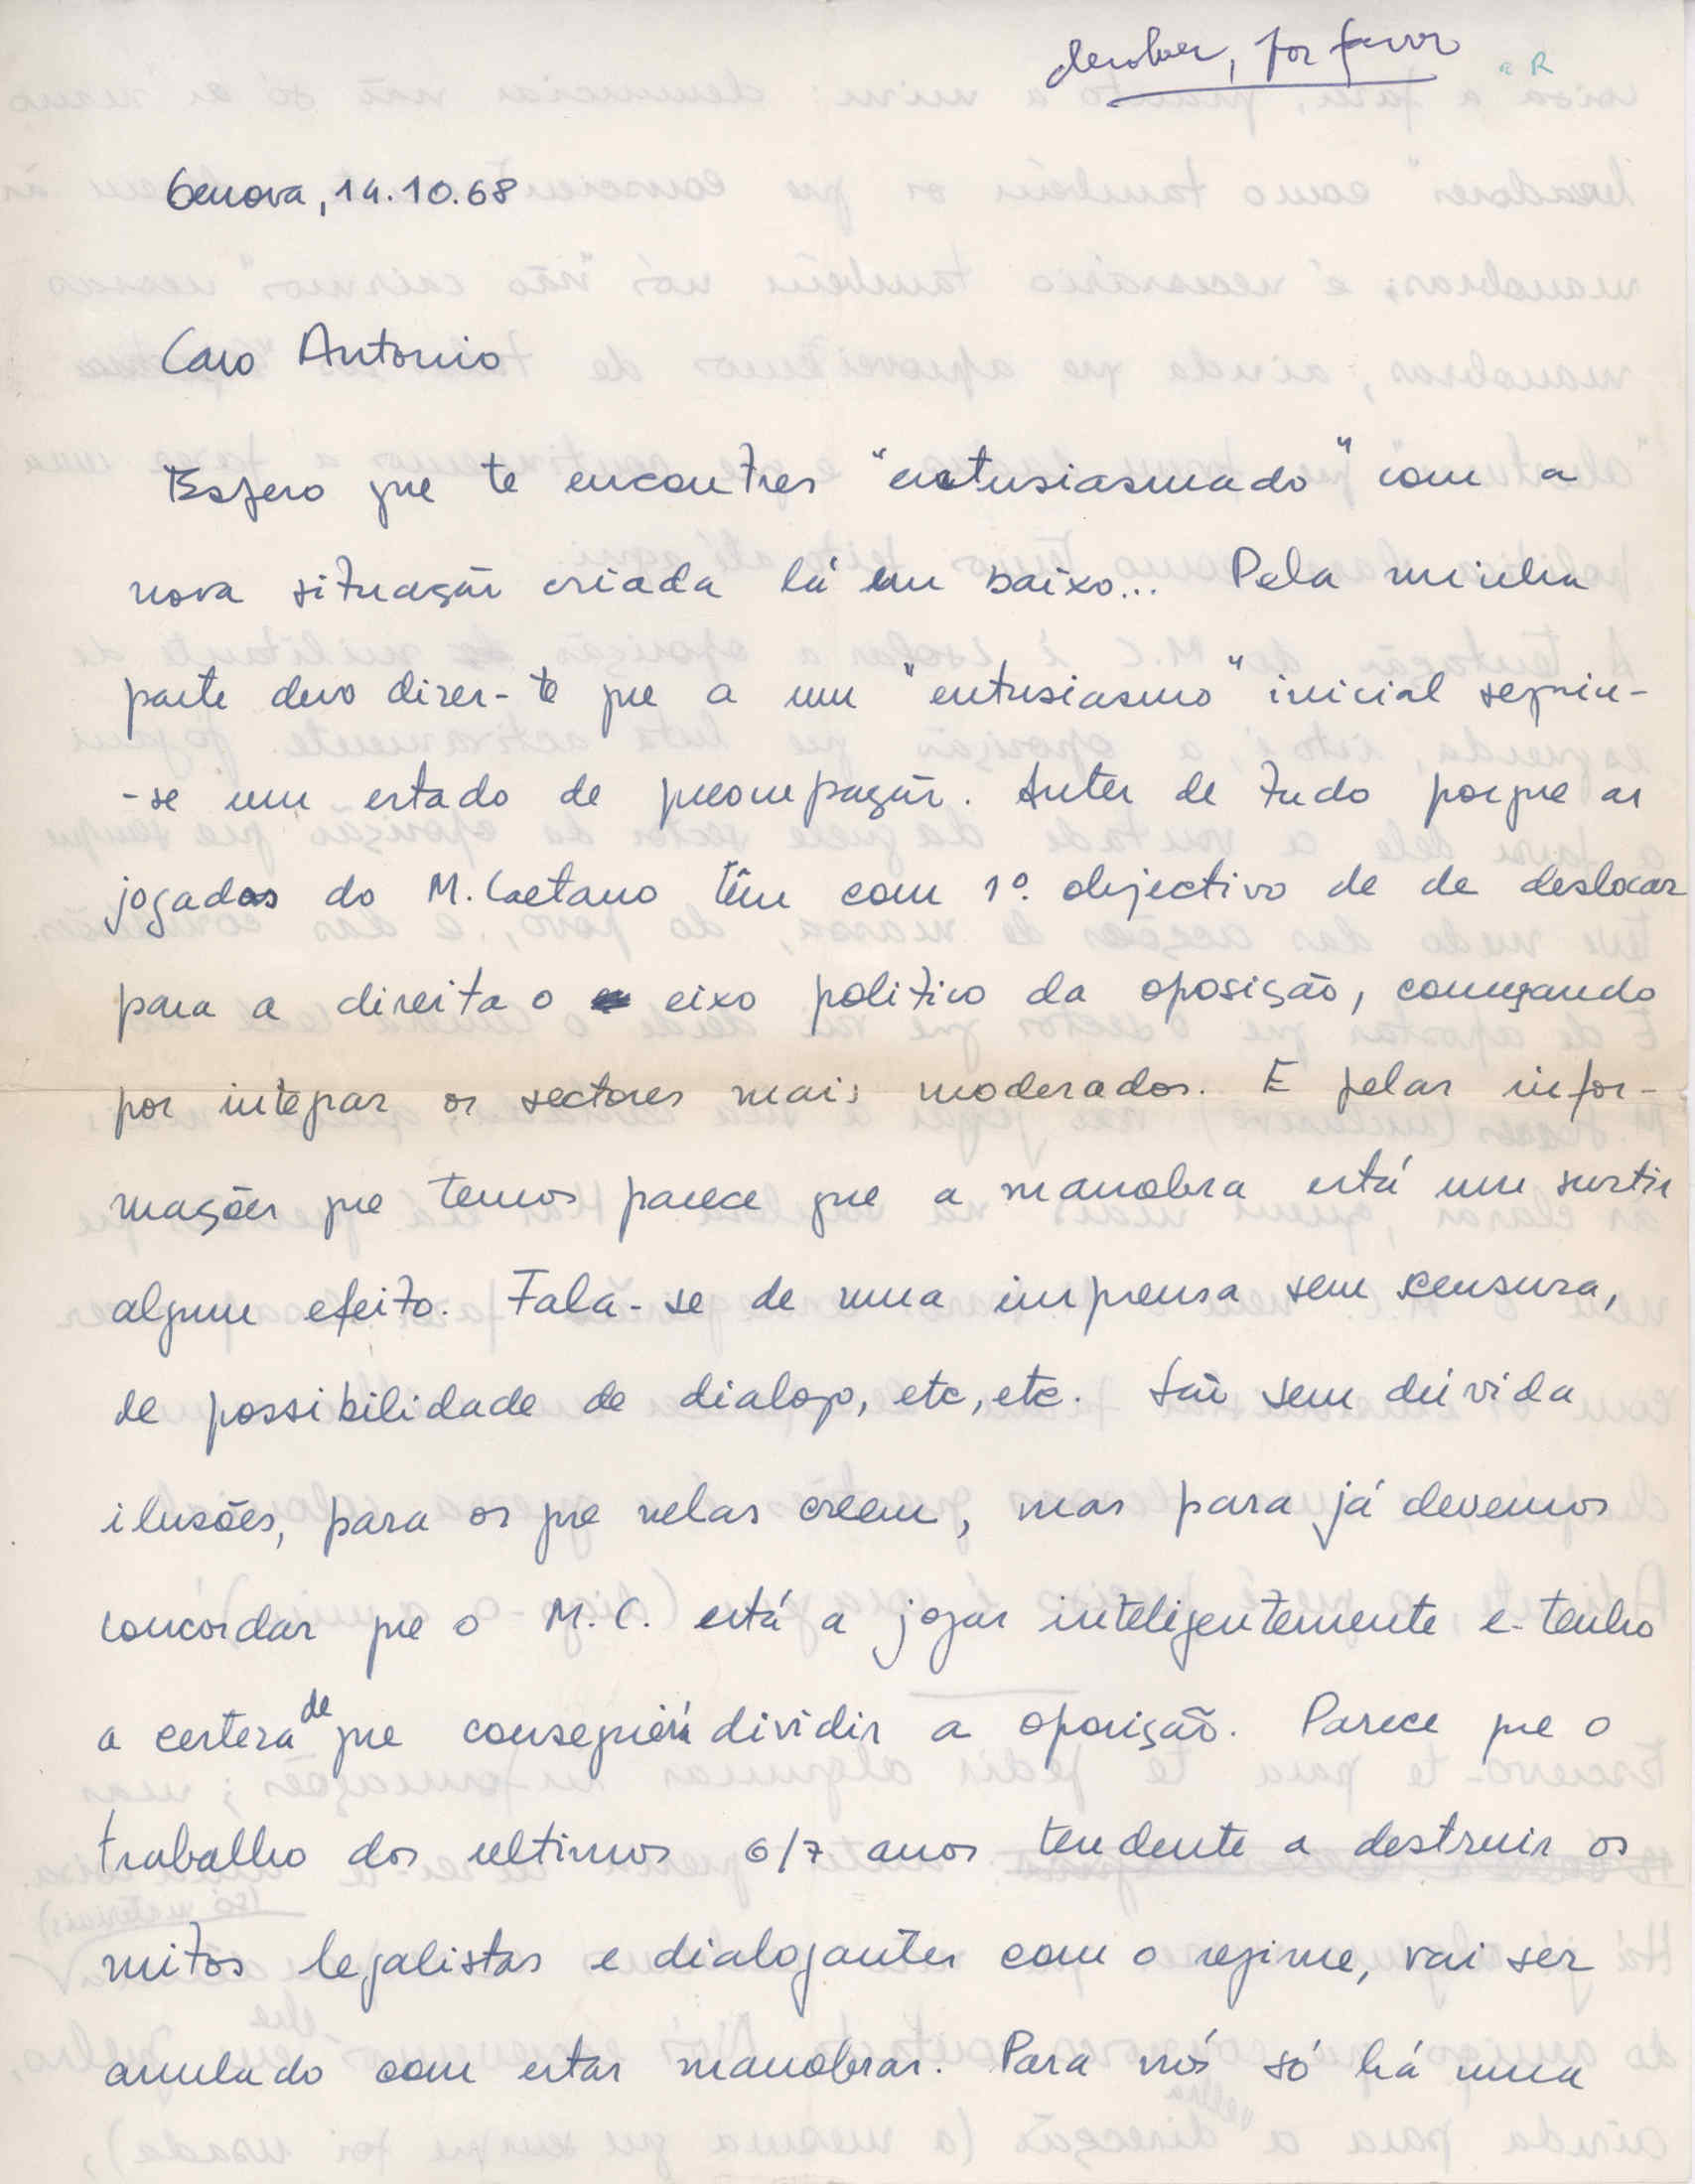 devolver, por favor
a R
Genova, 14.10.68
Caro Antonio
Espero que te encontres "entusiasmado" com a
nova situação criada lá em baixo... Pela minha
parte devo dizer-te que a um "entusiasmo" inicial seguiu-
-se um estado de preocupação. Antes de tudo porque as
jogadas do M. Caetano têm com 1º. objectivo de de deslocar
para a direita o eixo politico da oposição, começando
por integrar os sectores mais moderados. E pelas infor-
mações que temos parece que a manobra está um surtir
algum efeito. Fala-se de uma imprensa sem censura,
de possibilidade de dialogo, etc, etc. São sem dúvida
ilusões, para os que nelas creem, mas para já devemos
concordar que o M.C. está a jogar inteligentemente e tenho
a certeza de que conseguirá dividir a oposição. Parece que o
trabalho dos ultimos 6/7 anos tendente a destruir os
mitos legalistas e dialogantes com o regime, vai ser
anulado com estas manobras. Para nós só há uma